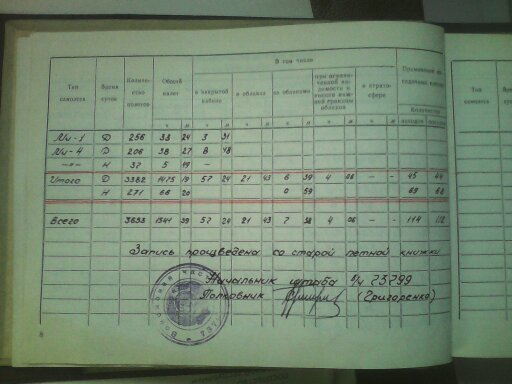 В том числе
Тип самолета
Время суток
Количество полетов
Общий налет
в закрытой кабине
в облаках
за облаками
при ограниченной видимости и высоте нижней границы облаков
в стратосфере
Количество
ч м ч м ч м ч м ч м ч м
Д 256 33 24 3 31
Д 206 38 27 8 48
—"— Н 37 5 19 —
Итого Д 3382 1475 19 57 24 21 43 6 39 4 06 — — 45 44
Н 271 66 20 0 59 69 68
Всего 3653 1541 39 57 24 21 43 7 38 4 06 — — 114 112
Запись произведена со старой летной книжки
Начальник штаба в/ч 23299
Полковник (Григоренко)
8
Тип самолета